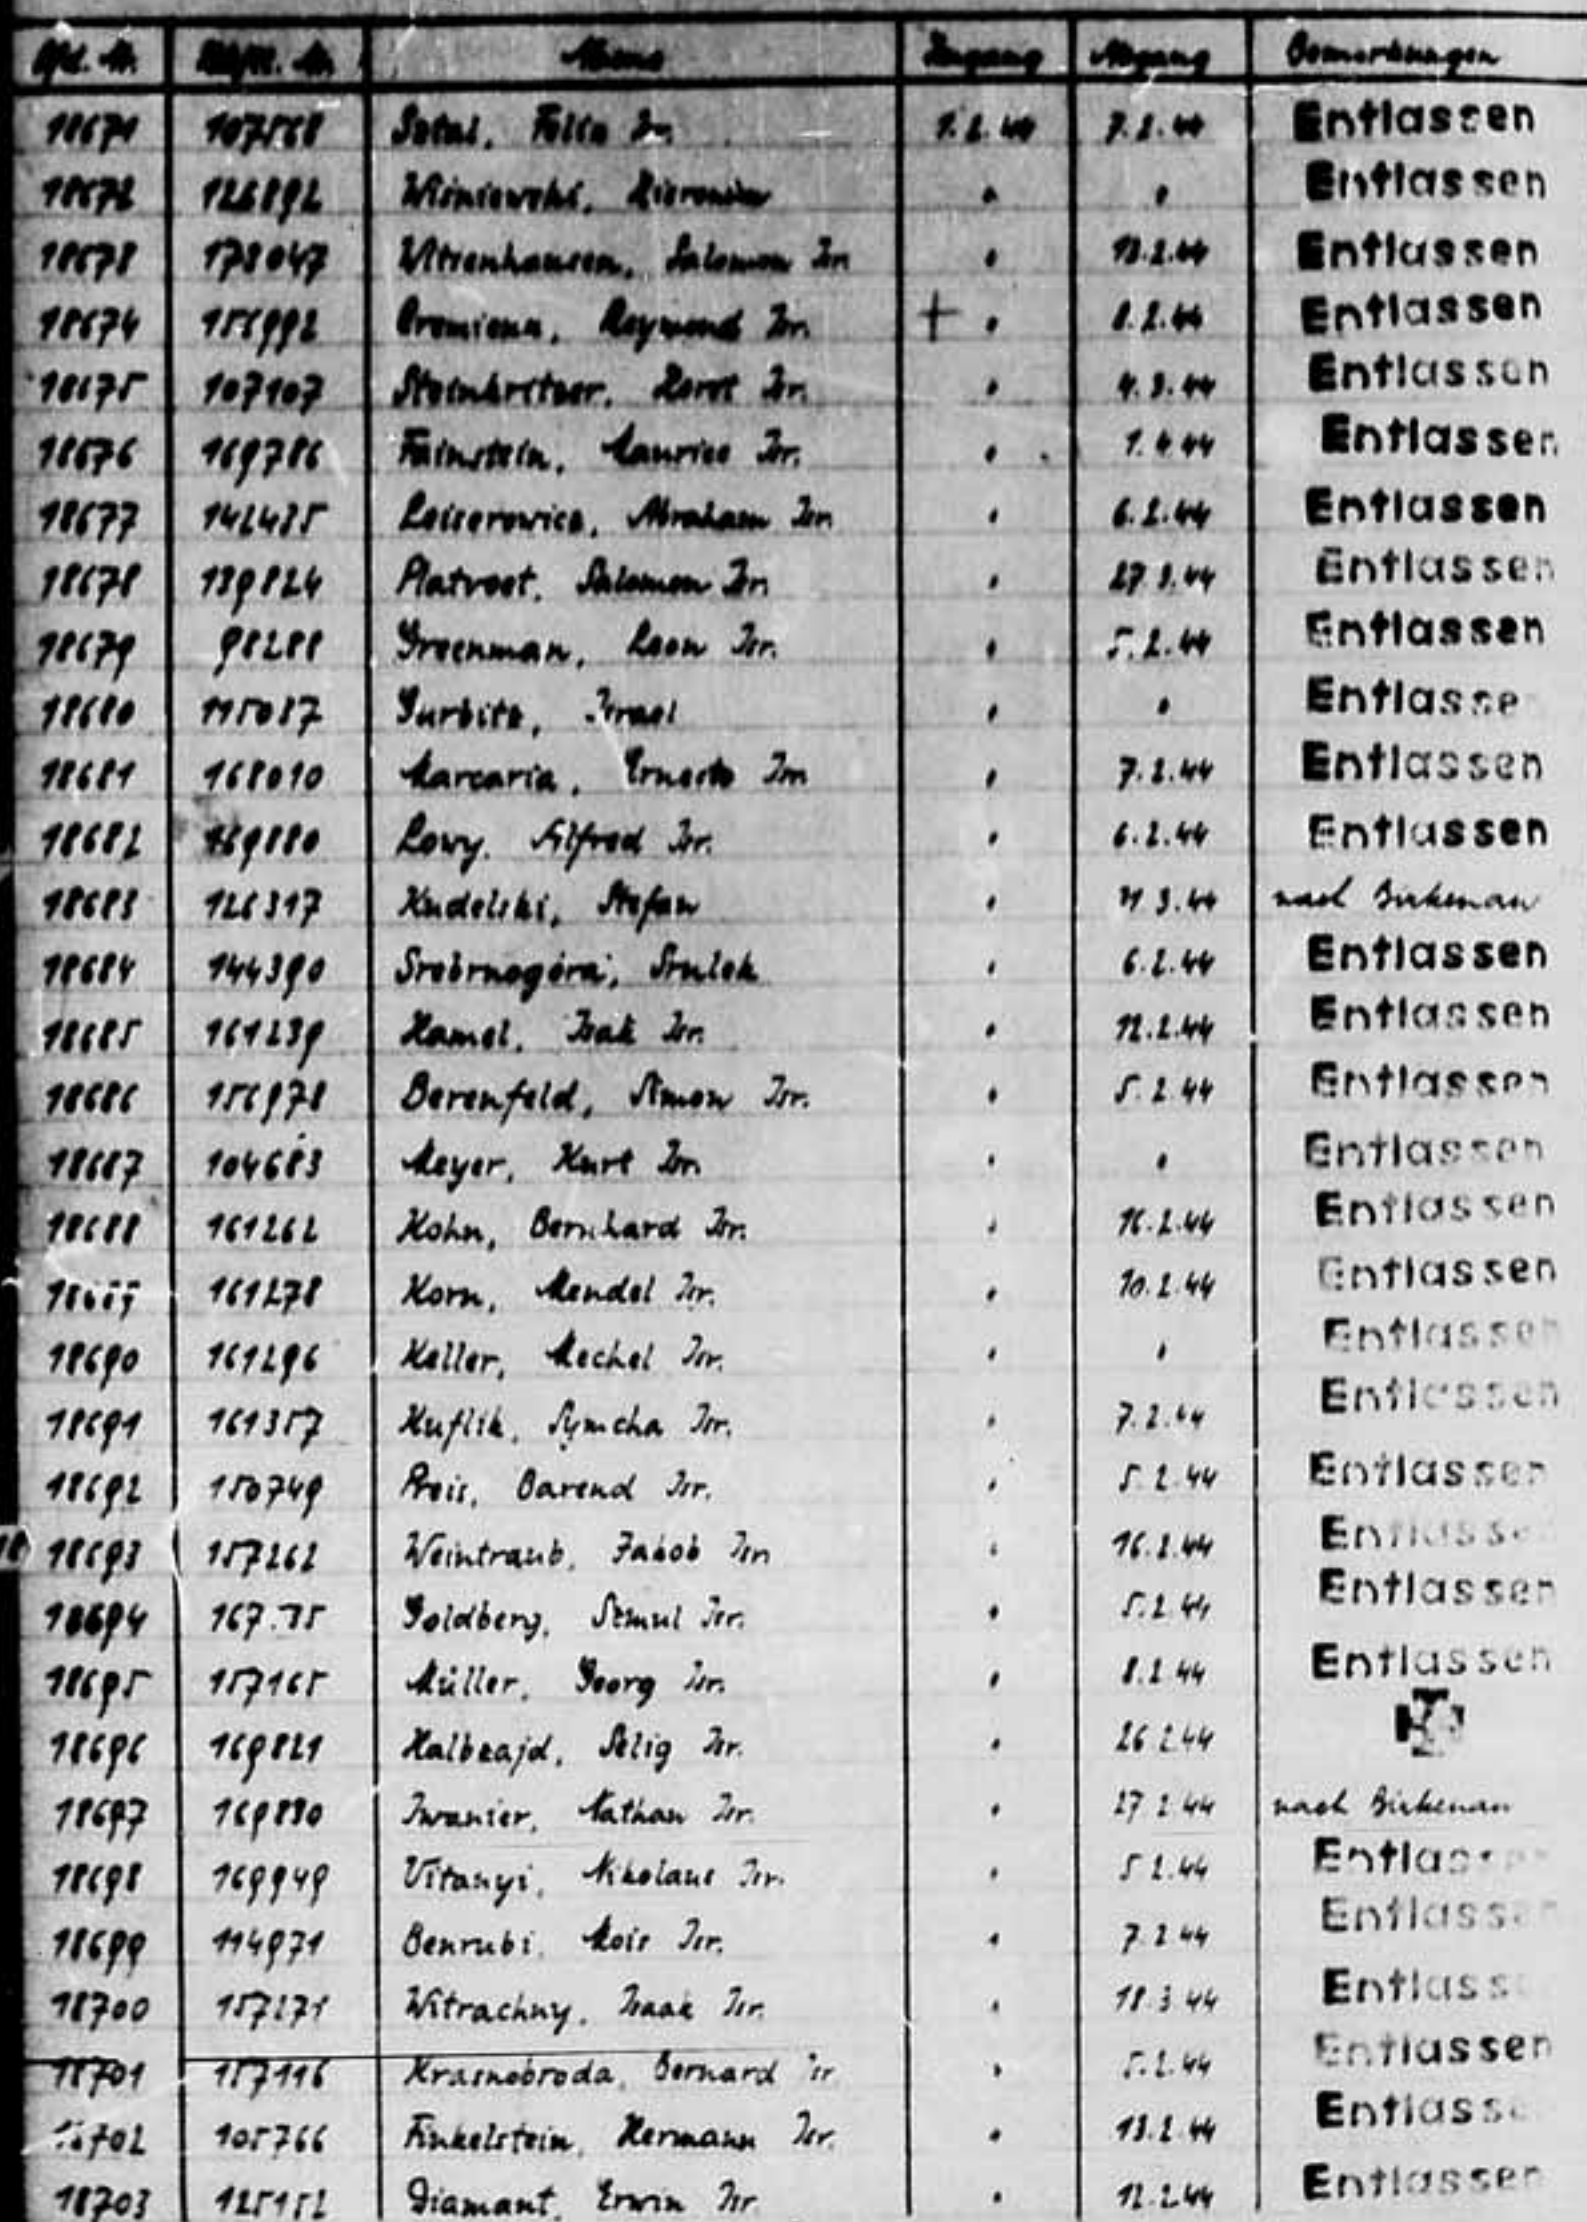 Lfd. Nr. Häftl. Nr. Name Zugang Abgang Bemerkungen
18671 107568 Isr. 1.2.44 7.2.44 Entlassen
18672 126892 Wisniewski, Hieronim " " Entlassen
18673 178047 Salomon Isr. " Entlassen
18674 156992 Isr. + " 8.2.44 Entlassen
18675 107107 Horst Isr. " 4.3.44 Entlassen
18676 169786 Fainstein, Maurice Isr. " 1.4.44 Entlassen
18677 142435 Leiserowicz, Abraham Isr. " 6.2.44 Entlassen
18678 139824 Platvoet, Salomon Isr. " 27.3.44 Entlassen
18679 98288 Greenman, Leon Isr. " 5.2.44 Entlassen
18680 115087 Gurbitz, Israel " " Entlassen
18681 168010 Marcaria, Ernesto Isr. " 7.2.44 Entlassen
18682 169880 Lowy, Alfred Isr. " 6.2.44 Entlassen
18683 126317 Kudelski, Stefan " 3.44 nach Birkenau
18684 144390 Srebrnagóra, Srulek " 6.2.44 Entlassen
18685 161239 Hamel, Isak Isr. " 12.2.44 Entlassen
18686 156978 Berenfeld, Simon Isr. " 5.2.44 Entlassen
18687 104683 Meyer, Kurt Isr. " " Entlassen
18688 161262 Kohn, Bernhard Isr. " 16.2.44 Entlassen
161278 Korn, Mendel Isr. " 10.2.44 Entlassen
18690 161296 Keller, Mechel Isr. " " Entlassen
18691 161357 Kuflik, Symcha Isr. " 7.2.44 Entlassen
18692 150749 Preis, Barend Isr. " 5.2.44 Entlassen
18693 157262 Weintraub, Jakob Isr. " 16.2.44 Entlassen
18694 Goldberg, Szmul Isr. " 5.2.44 Entlassen
18695 157165 Müller, Georg Isr. " 8.2.44 Entlassen
18696 169821 Halbzajd, Selig Isr. " 26.2.44
18697 169830 Iwanier, Nathan Isr. " 27.2.44 nach Birkenau
18698 169949 Vitanyi, Nikolaus Isr. " 5.2.44 Entlassen
18699 114971 Benrubi, Mois Isr. " 7.2.44 Entlassen
18700 157271 Witrachny, Isaak Isr. " 18.3.44 Entlassen
18701 157116 Krasnobroda, Bernard Isr. " 5.2.44 Entlassen
18702 105766 Finkelstein, Hermann Isr. " 13.2.44 Entlassen
18703 125152 Diamant, Erwin Isr. " 12.2.44 Entlassen